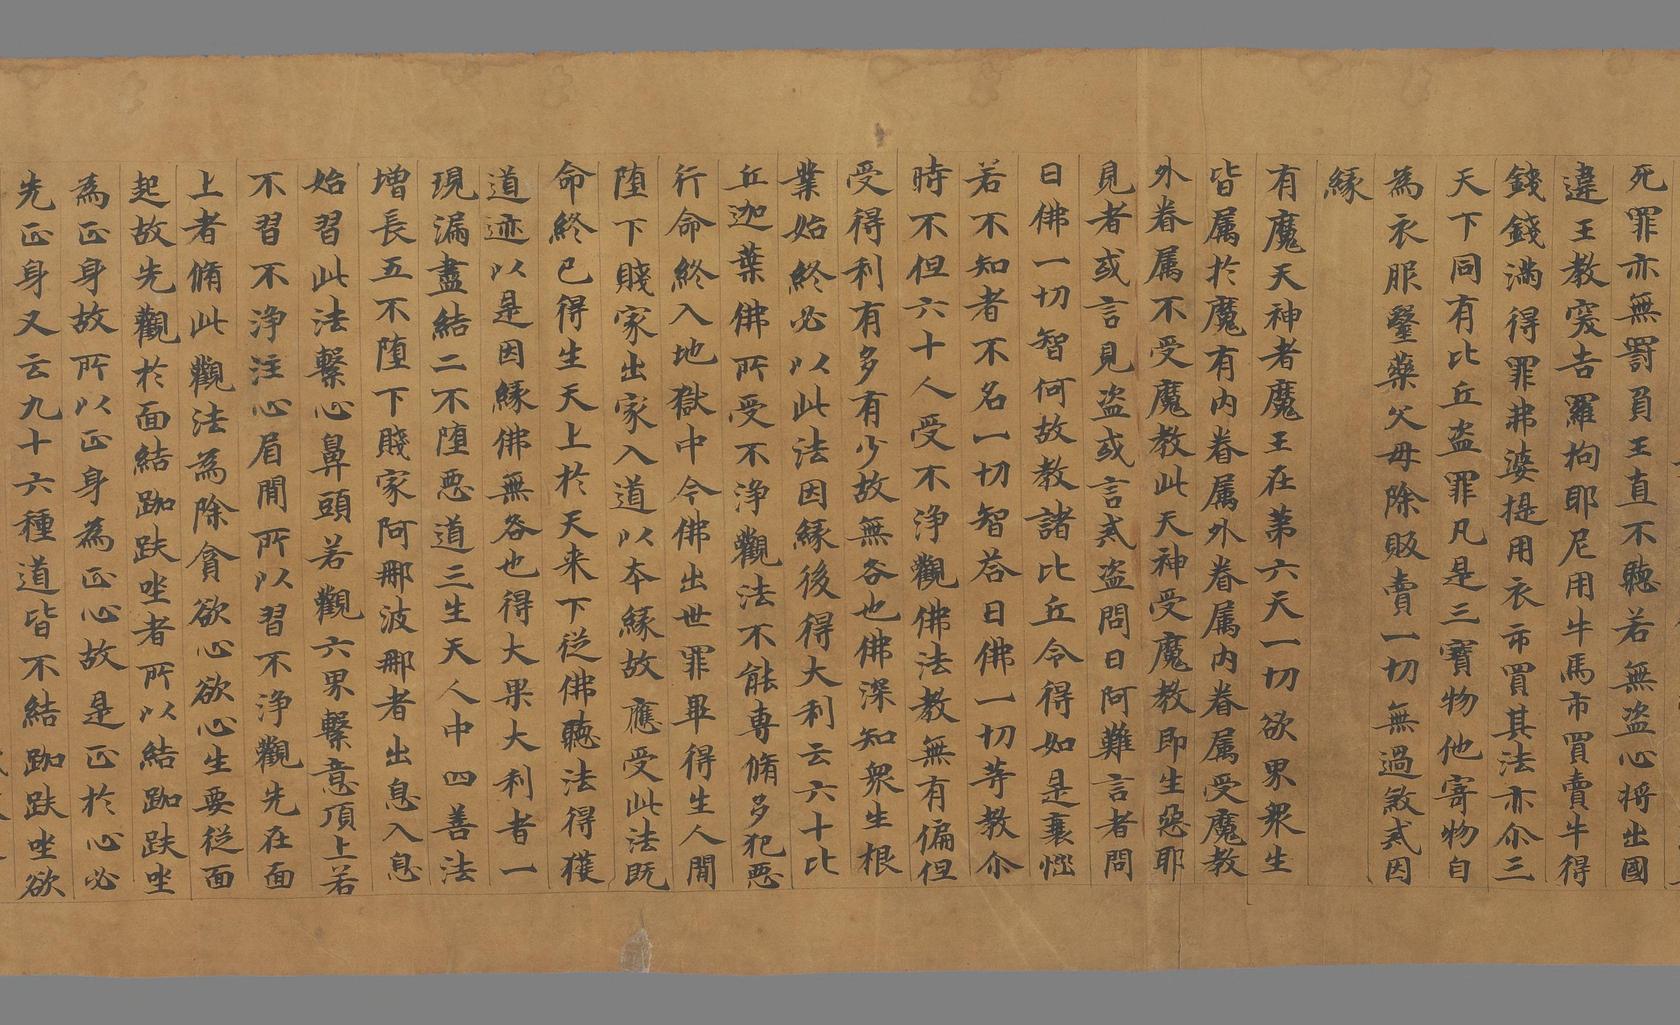 死罪亦無罸負王直不聴若無盗心将出國
違王教突吉羅拘耶尼用牛馬市買賣牛得
錢錢滿得罪弗婆提用衣市買其法亦尒三
天下同有比丘盗罪凡是三寶物他寄物自
為衣服醫藥父母除販賣一切無過煞貳因
縁
有魔天神者魔王在苐六天一切欲界衆生
皆属於魔有内眷属外眷属内眷属受魔教
外眷属不受魔教此天神受魔教即生惡耶
見者或言見盗或言貳盗問曰阿難言者問
曰佛一切智何故教諸比丘令得如是襄惱
若不知者不名一切智荅曰佛一切等教尒
時不但六十人受不浄觀佛法教無有偏但
受得利有多有少故無咎也佛深知衆生根
業始終必以此法因縁後得大利云六十比
丘迦葉佛所受不浄觀法不能専脩多犯惡
行命終入地獄中今佛出世罪畢得生人間
堕下賤家出家入道以本縁故應受此法既
命終已得生天上於天来下従佛聴法得獲
道迹以是因縁佛無咎也得大果大利者一
現漏盡結二不堕悪道三生天人中四善法
増長五不堕下賤家阿那波那者出息入息
始習此法繫心鼻頭若觀六界繫意頂上若
不習不浄注心眉間所以習不浄觀先在面
上者脩此觀法為除貪欲心欲心生要従面
起故先觀於面結跏趺坐者所以結跏趺坐
為正身故所以正身為正心故是正於心必
先正身又云九十六種道皆不結跏趺坐欲